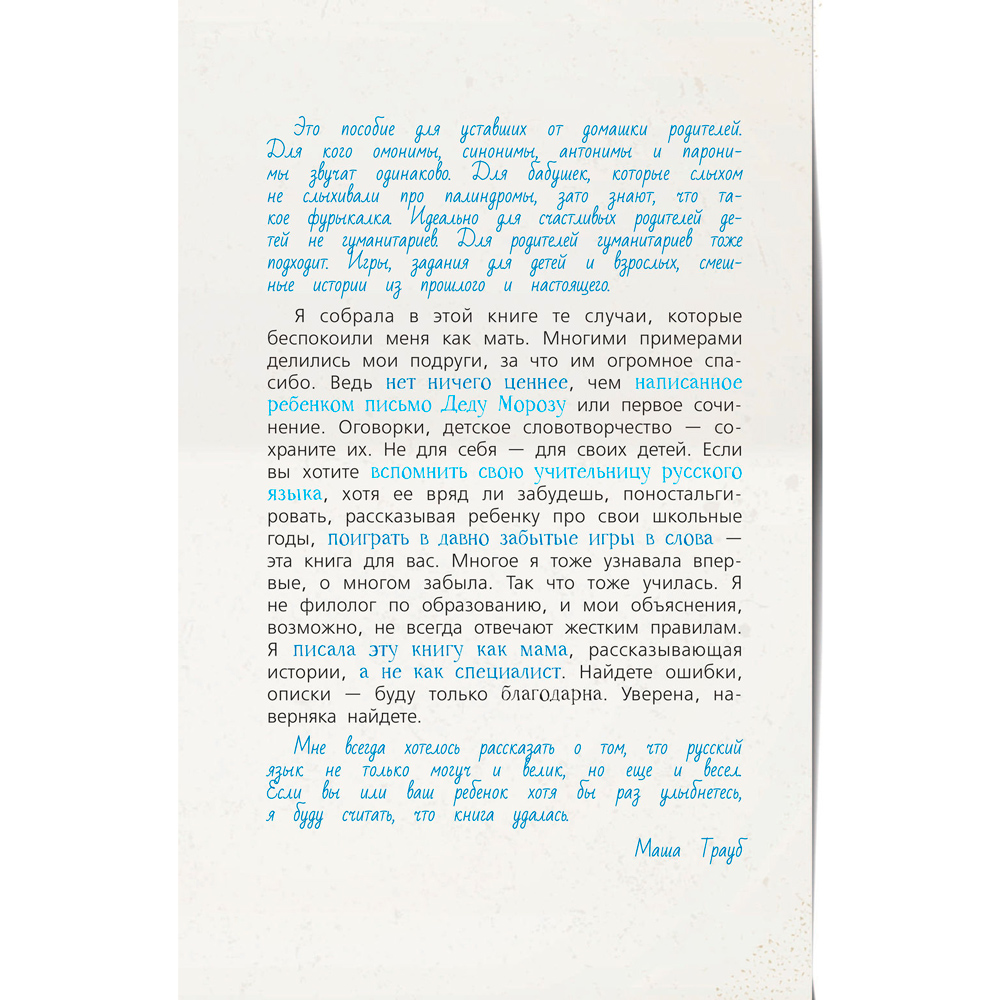 Это пособие для уставших от домашки родителей.
Для кого омонимы, синонимы, антонимы и парони-
мы звучат одинаково. Для бабушек, которые слыхом
не слыхивали про палиндромы, зато знают, что та-
кое фурыкалка. Идеально для счастливых родителей де-
тей не гуманитариев. Для родителей гуманитариев тоже
подходит. Игры, задания для детей и взрослых, смеш-
ные истории из прошлого и настоящего.
Я собрала в этой книге те случаи, которые
беспокоили меня как мать. Многими примерами
делились мои подруги, за что им огромное спа-
сибо. Ведь нет ничего ценнее, чем написанное
ребенком письмо Деду Морозу или первое сочи-
нение. Оговорки, детское словотворчество — со-
храните их. Не для себя — для своих детей. Если
вы хотите вспомнить свою учительницу русского
языка, хотя ее вряд ли забудешь, поностальги-
ровать, рассказывая ребенку про свои школьные
годы, поиграть в давно забытые игры в слова —
эта книга для вас. Многое я тоже узнавала впер-
вые, о многом забыла. Так что тоже училась. Я
не филолог по образованию, и мои объяснения,
возможно, не всегда отвечают жестким правилам.
Я писала эту книгу как мама, рассказывающая
истории, а не как специалист. Найдете ошибки,
описки — буду только благодарна. Уверена, на-
верняка найдете.
Мне всегда хотелось рассказать о том, что русский
язык не только могуч и велик, но еще и весел.
Если вы или ваш ребенок хотя бы раз улыбнетесь,
я буду считать, что книга удалась.
Маша Трауб